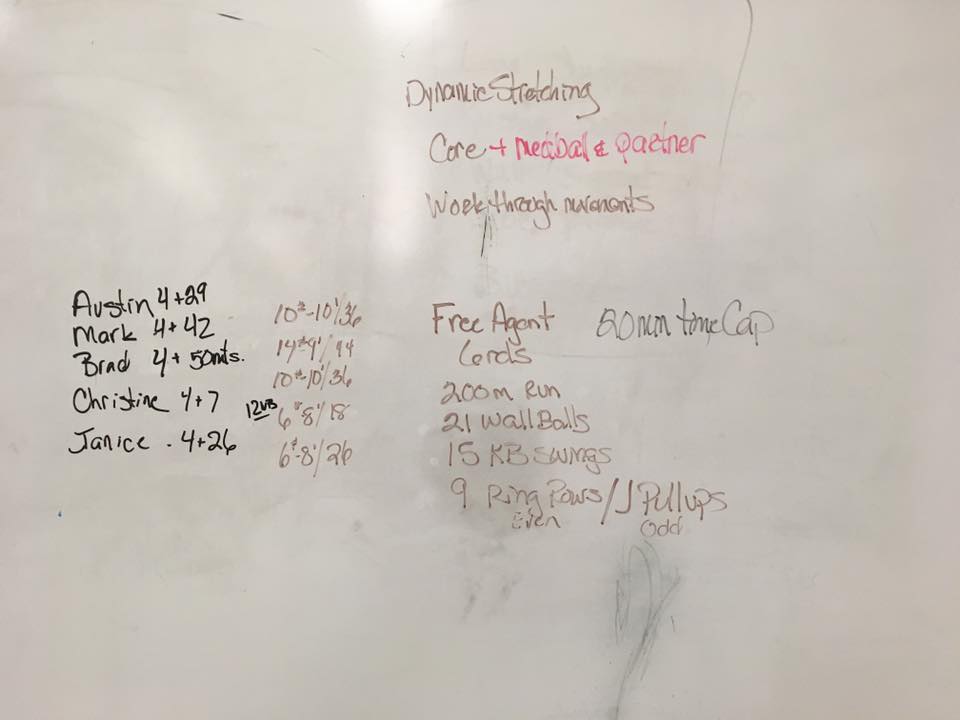 Dynamic Stretching
Core + medball & partner
Work through movements
Austin 4+29 10#-10'/36
Mark 4+42 14#-9'/44
Brad 4+50mts. 10#-10'/36
Christine 4+7 12WB 6#8'/18
Janice - 4+26 6#-8'/26
Free Agent 20min time Cap
6rnds
200m Run
21 Wall Balls
15 KB Swings
9 Ring Rows/J Pullups
Even Odd